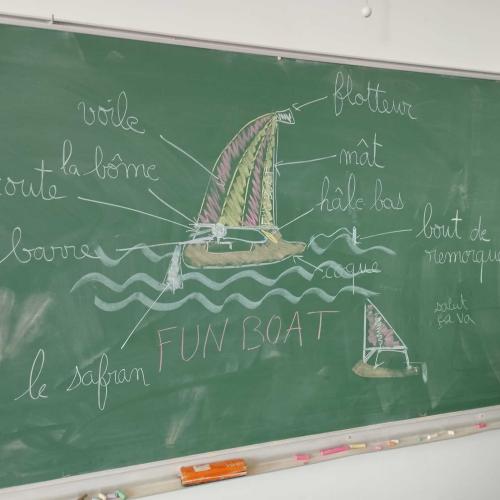 voile
flotteur
la bôme
mât
oute
hâle bas
barre
bout de
remorque
coque
salut
ça va
FUN BOAT
le safran